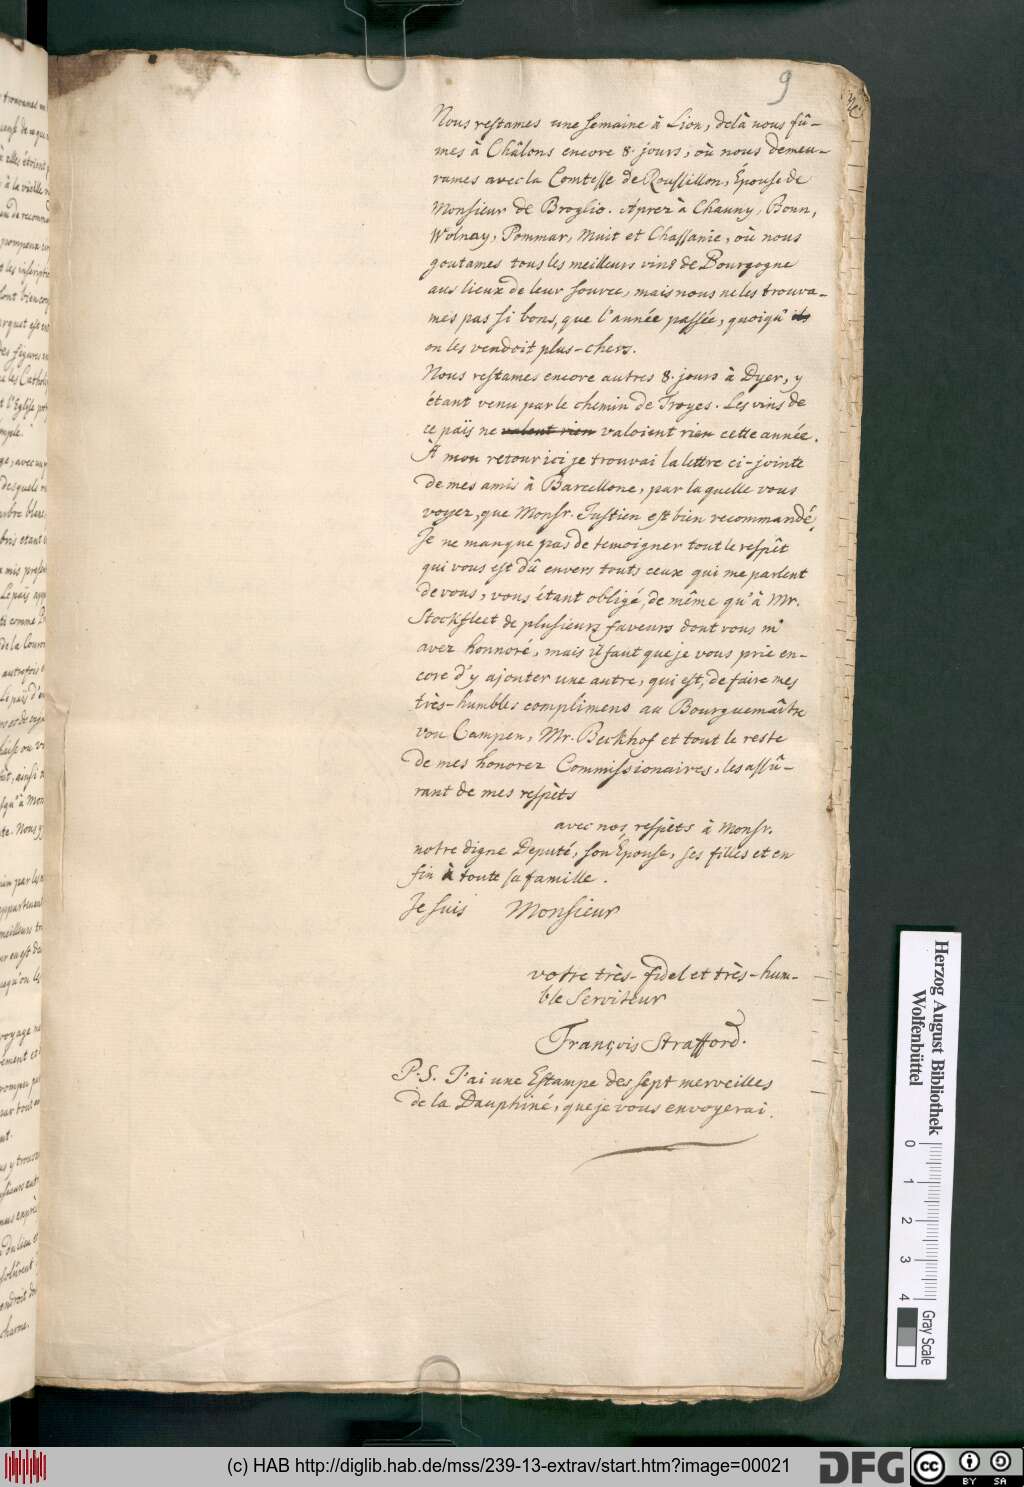 9
Nous restames une semaine à Lion, delà nous fû-
mes à Châlons encore 8. jours, où nous demeu-
rames avec la Comtesse de Roussillon, Épouse de
Monsieur de Broglio. Aprez à Chauny, Boun,
Wolnay, Pommar, Muit et Chassanie, où nous
goutames tous les meilleurs vins de Bourgogne
aus lieux de leur source, mais nous ne les trouva-
mes pas si bons, que l'année passée, quoiqu' ils
on les vendoit plus-chers.
Nous restames encore autres 8. jours à Dyer, y
étant venu par le chemin de Troyes. Les vins de
ce païs ne valent rien valoient rien cette année.
À mon retour ici je trouvai la lettre ci-jointe
de mes amis à Barcellone, par laquelle vous
voyez, que Monsr. Justien est bien recommandé.
Je ne manque pas de temoigner tout le respêt
qui vous est dû envers touts ceux qui me parlent
de vous, vous étant obligé, de même qu'à Mr.
Stockfleet de plusieurs faveurs dont vous m'
avez honnoré, mais il faut que je vous prie en-
core d'y ajouter une autre, qui est, de faire mes
très-humbles complimens au Bourguemaître
von Campen, Mr. Beckhof et tout le reste
de mes honorez Commissionaires, les assû-
rant de mes respèts
avec nos respèts à Monsr.
notre digne Deputé, son Épouse, ses filles et en
fin à toute sa famille.
Je suis Monsieur
votre très-fidel et très-hum-
ble Serviteur
François Strafford.
P.S. J'ai une Estampe des sept merveilles
de la Dauphiné, que je vous envoyerai.
Herzog August Bibliothek
Wolfenbüttel
0 1 2 3 4
Gray Scale
(c) HAB http://diglib.hab.de/mss/239-13-extrav/start.htm?image=00021
DFG
cc BY SA